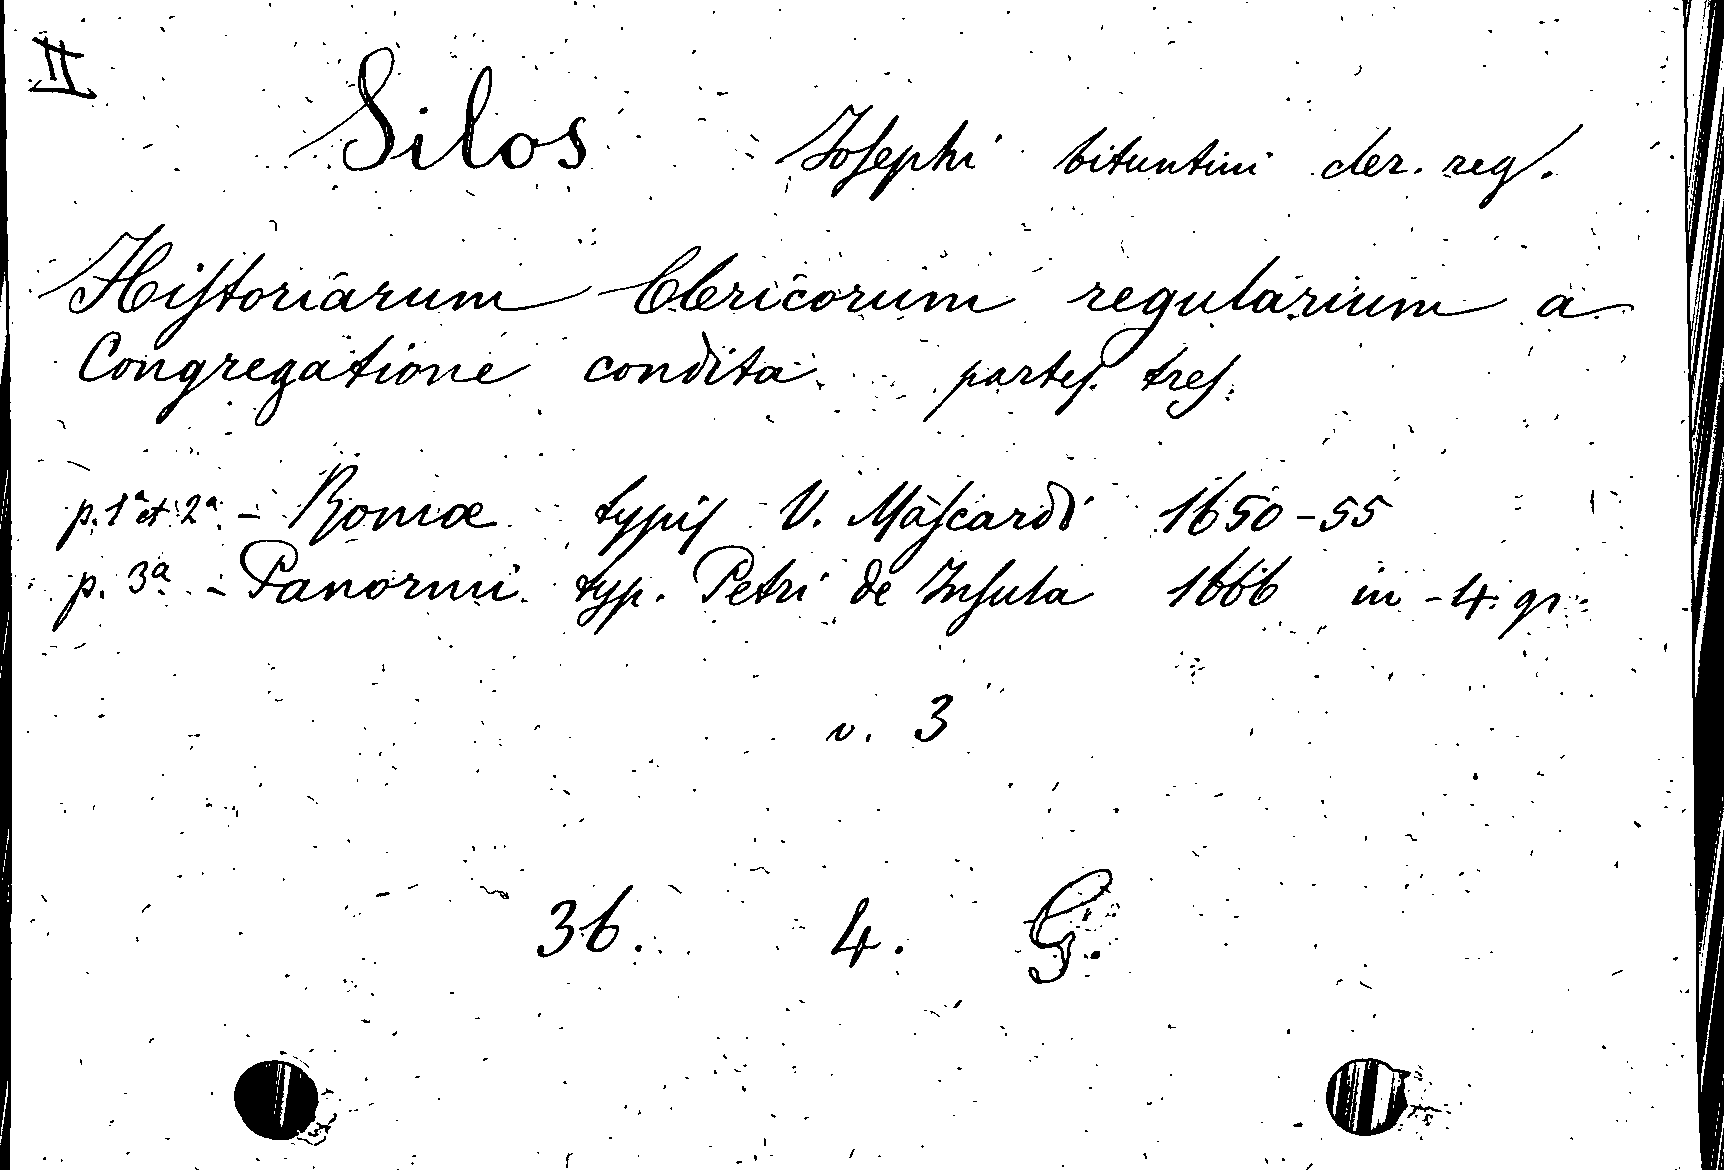 II
Silos Josephi bituntini cler. reg.
Historiarum Clericorum regularium a
Congregatione condita partes tres.
p. 1ª et 2ª - Romæ typis V. Mascardi 1650-55
p. 3ª - Panormi typ. Petri de Insula 1666 in -4. gr.
v. 3
36. 4. G.